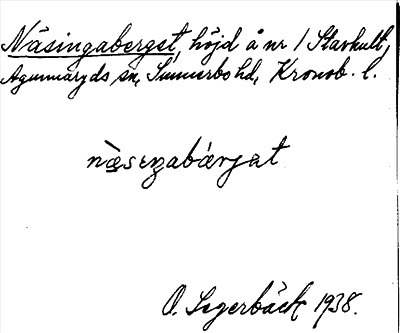 Näsingaberget, höjd å nr 1 Stavhult,
Agunnaryds sn, Sunnerbo hd, Kronob. l.
næ̀sıŋabárjat
O. Segerbäck 1938.